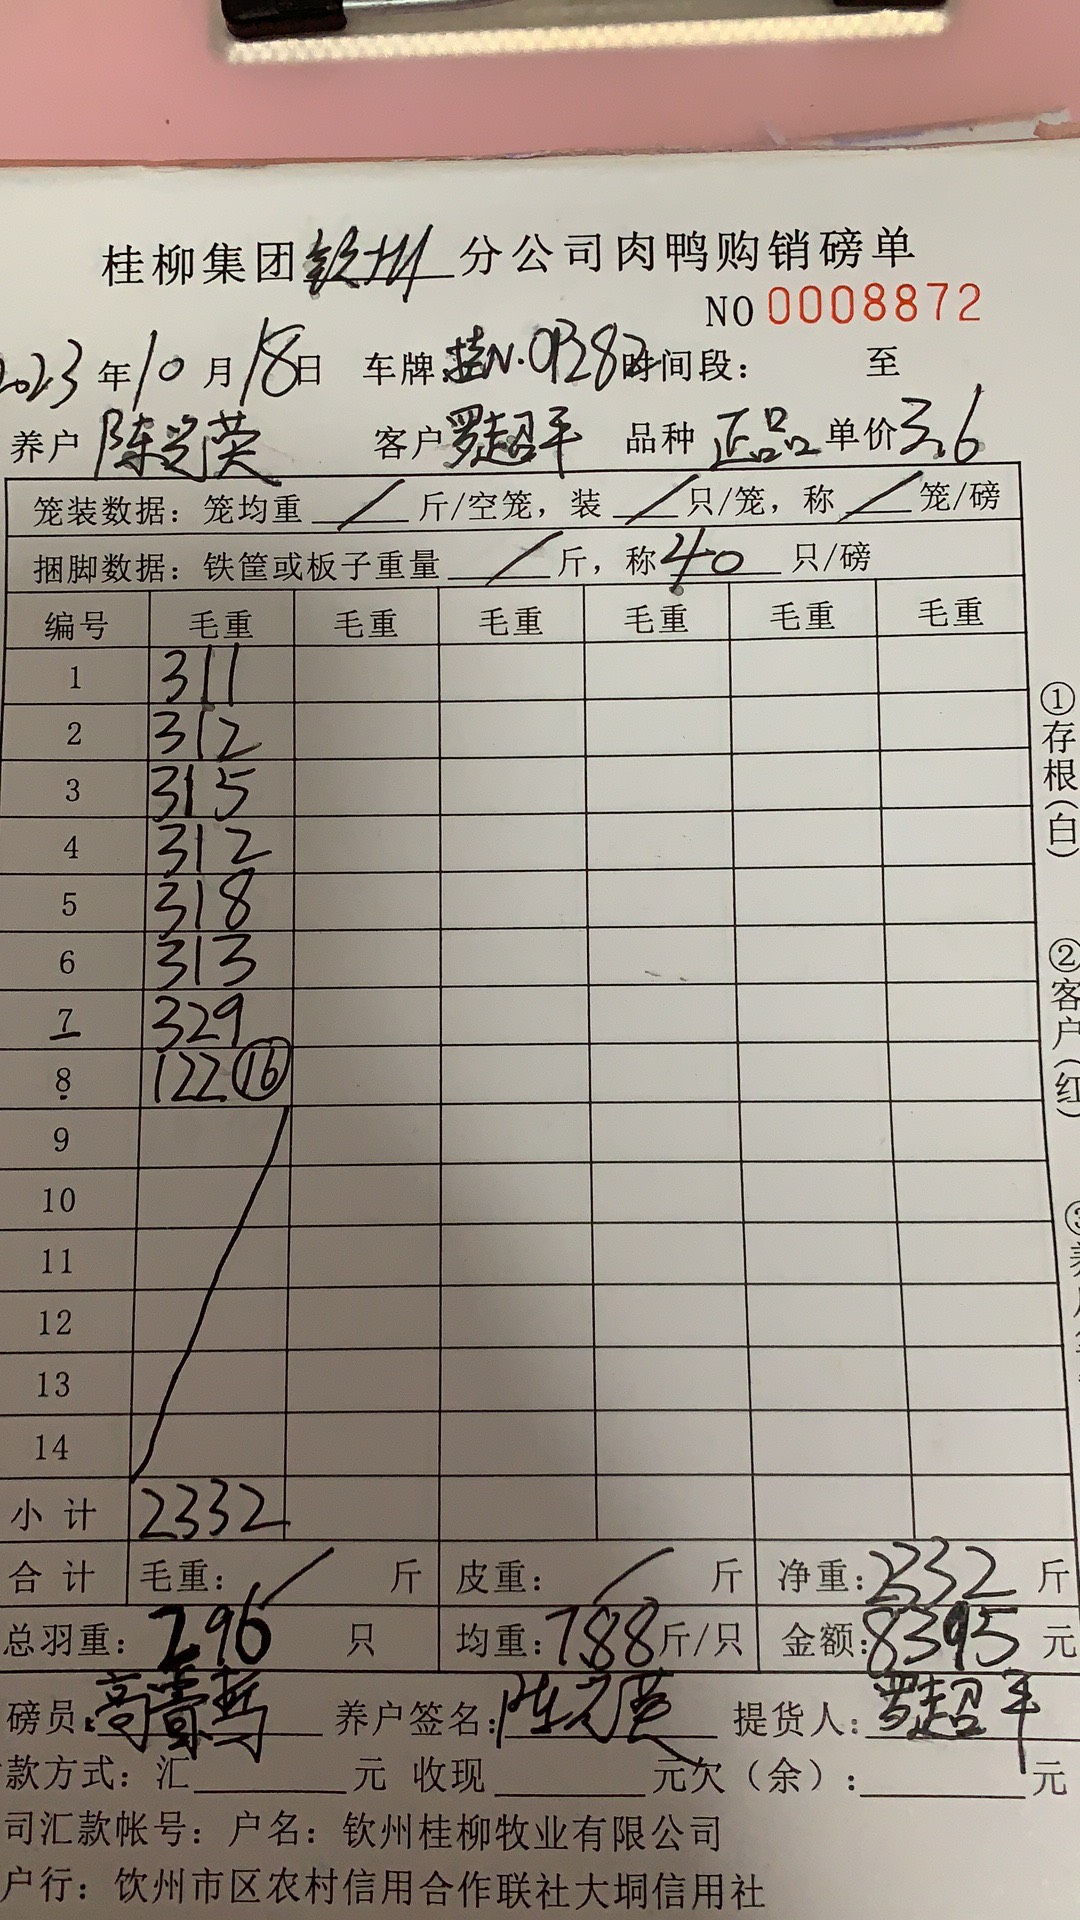 桂柳集团钦州分公司肉鸭购销磅单
NO 0008872
2023年10月18日 车牌:桂N·0B282时间段: 至
养户 陈光英 客户 罗超平 品种 正品 单价3.6
笼装数据: 笼均重 / 斤/空笼, 装 / 只/笼, 称 / 笼/磅
捆脚数据: 铁筐或板子重量 / 斤, 称 40 只/磅
编号 毛重 毛重 毛重 毛重 毛重 毛重
1 311
2 312
3 315
4 312
5 318
6 313
7 329
8 122 ⑯
9
10
11
12
13
14
小计 2332
合计 毛重: / 斤 皮重: / 斤 净重:2332 斤
总羽重: 296 只 均重:7.88斤/只 金额:8395 元
磅员: 养户签名:陈光英 提货人:罗超平
款方式: 汇 元 收现 元欠(余): 元
司汇款帐号: 户名: 钦州桂柳牧业有限公司
户行: 钦州市区农村信用合作联社大垌信用社
①存根(白)
②客户(红)